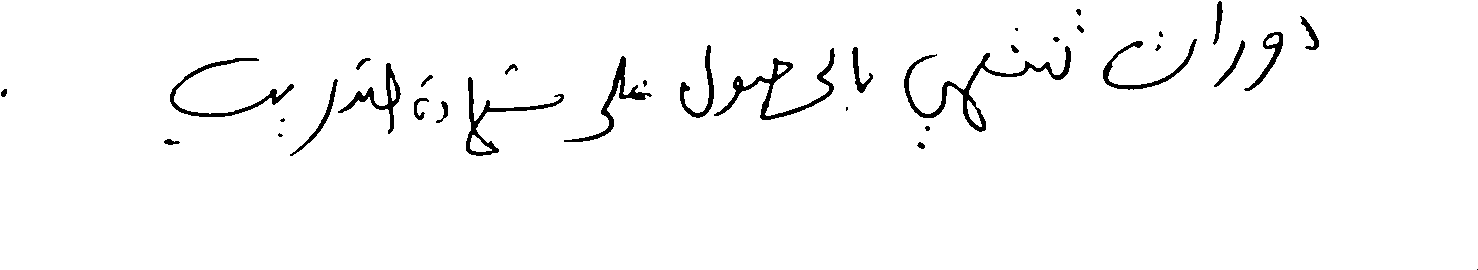 دورات تنتهي بالحصول على شهادة التدريب